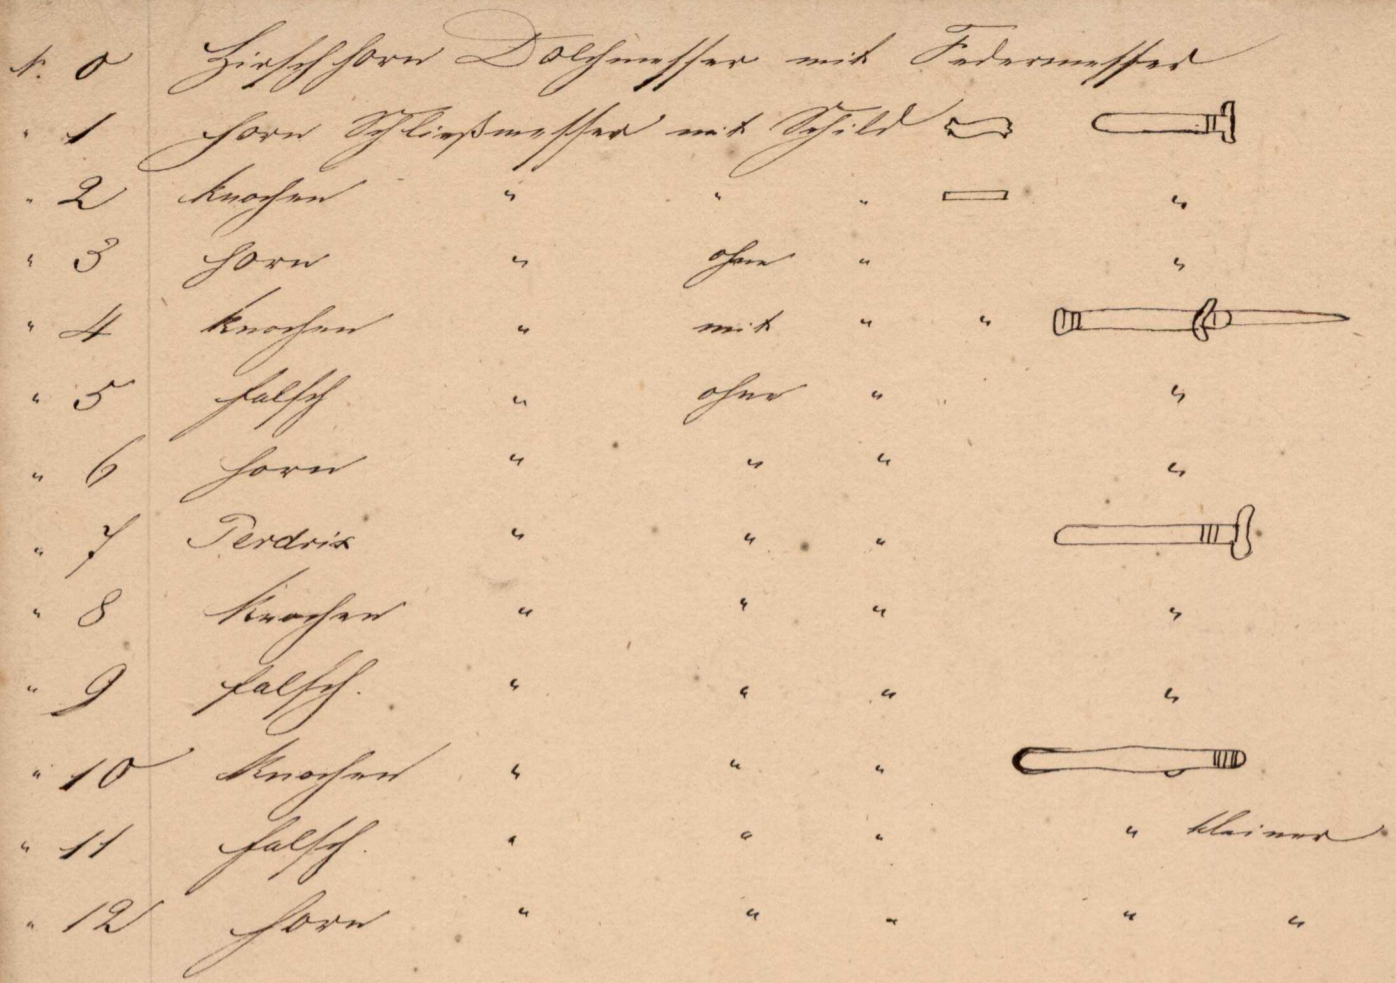 N. 0 Hirschhorn Dolchmesser mit Federmesser
" 1 Horn Schließmesser mit Schild
" 2 Knochen " " " "
" 3 Horn " ohne " "
" 4 Knochen " mit " "
" 5 falsch " ohne " "
" 6 Horn " " " "
" 7 Perdrix " " "
" 8 Knochen " " " "
" 9 falsch. " " " "
" 10 Knochen " " "
" 11 falsch. " " " " kleiner
" 12 Horn " " " " "